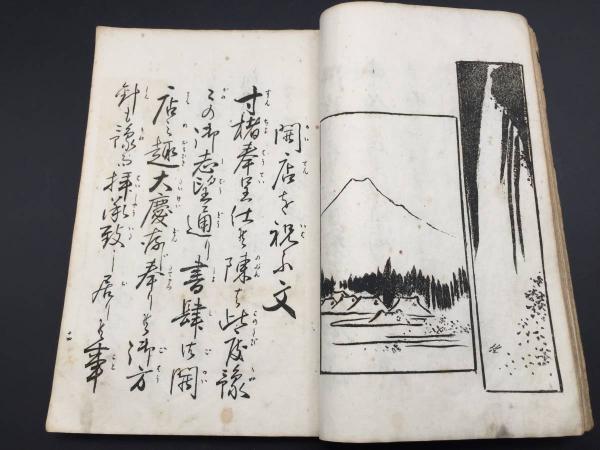 開店を祝ふ文
寸楮奉呈仕候陳者此度豫
ての御志望通り書肆御開
店之趣大慶存奉り候御方
針も豫而拝承致し居り候事